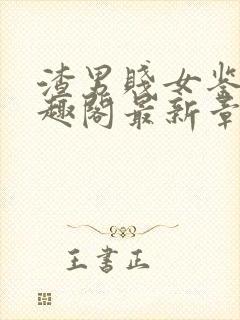 渣男贱女鉴
趣阁最新章
王书正